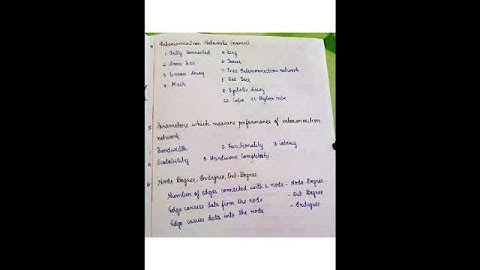 Interconnection Networks (names)
1. Fully Connected 5. Ring
2. Cross Bar 6. Torus
3. Linear Array 7. Tree Interconnection network
4. Mesh 8. Fat Tree
9. Systolic Array
10. Cube 11. Hyper cube
5 Parameters which measure performance of interconnection
network
1 Bandwidth 2. Functionality 3. Latency
4 Scalability 5. Hardware Complexity
6 Node Degree, Indegree, Out-Degree
Number of edges connected with a node - Node Degree
Edge carries data from the node - Out Degree
Edge carries data into the node - Indegree